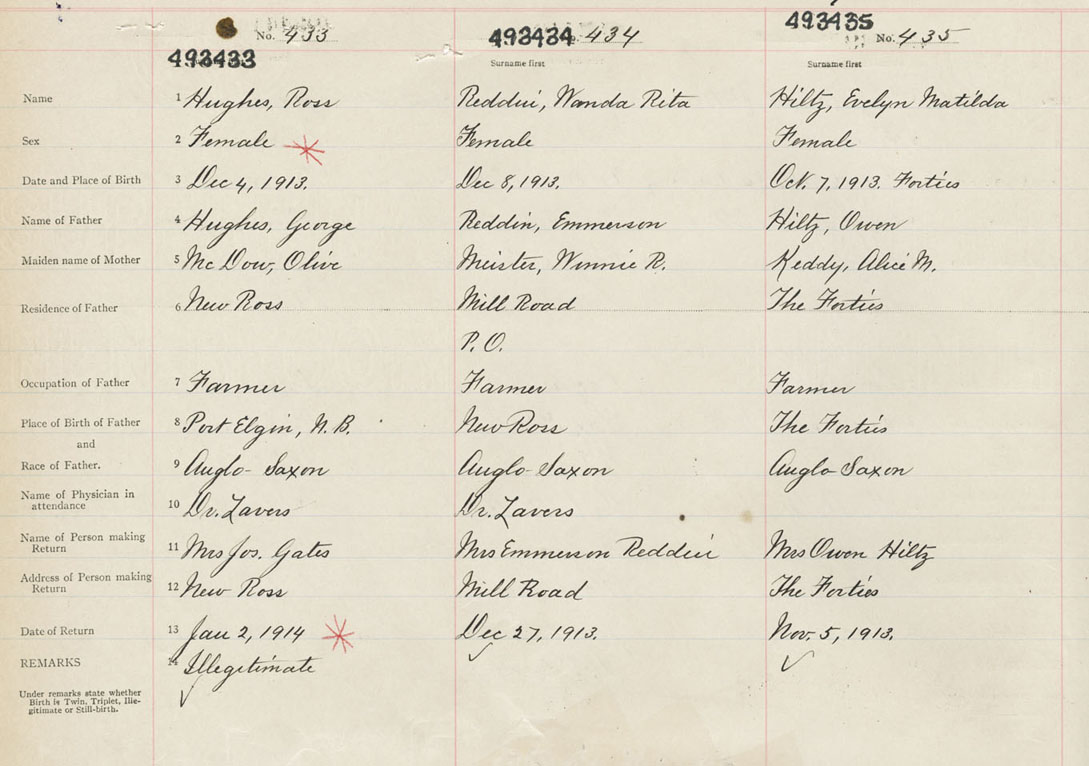 No. 433
493433
493434 434
Surname first
493435
No. 435
Surname first
Name 1 Hughes, Ross Reddin, Wanda Rita Hiltz, Evelyn Matilda
Sex 2 Female Female Female
Date and Place of Birth 3 Dec 4, 1913. Dec 8, 1913. Oct. 7, 1913. Forties
Name of Father 4 Hughes, George Reddin, Emmerson Hiltz, Owen
Maiden name of Mother 5 McDow, Olive Meister, Winnie R. Keddy, Alice M.
Residence of Father 6 New Ross Mill Road The Forties
P. O.
Occupation of Father 7 Farmer Farmer Farmer
Place of Birth of Father 8 Port Elgin, N. B. New Ross The Forties
and
Race of Father. 9 Anglo-Saxon Anglo-Saxon Anglo-Saxon
Name of Physician in
attendance 10 Dr. Lavers Dr. Lavers
Name of Person making
Return 11 Mrs Jos. Gates Mrs Emmerson Reddin Mrs Owen Hiltz
Address of Person making
Return 12 New Ross Mill Road The Forties
Date of Return 13 Jan 2, 1914 Dec 27, 1913. Nov. 5, 1913.
REMARKS 14 Illegitimate
Under remarks state whether
Birth is Twin, Triplet, Ille-
gitimate or Still-birth.